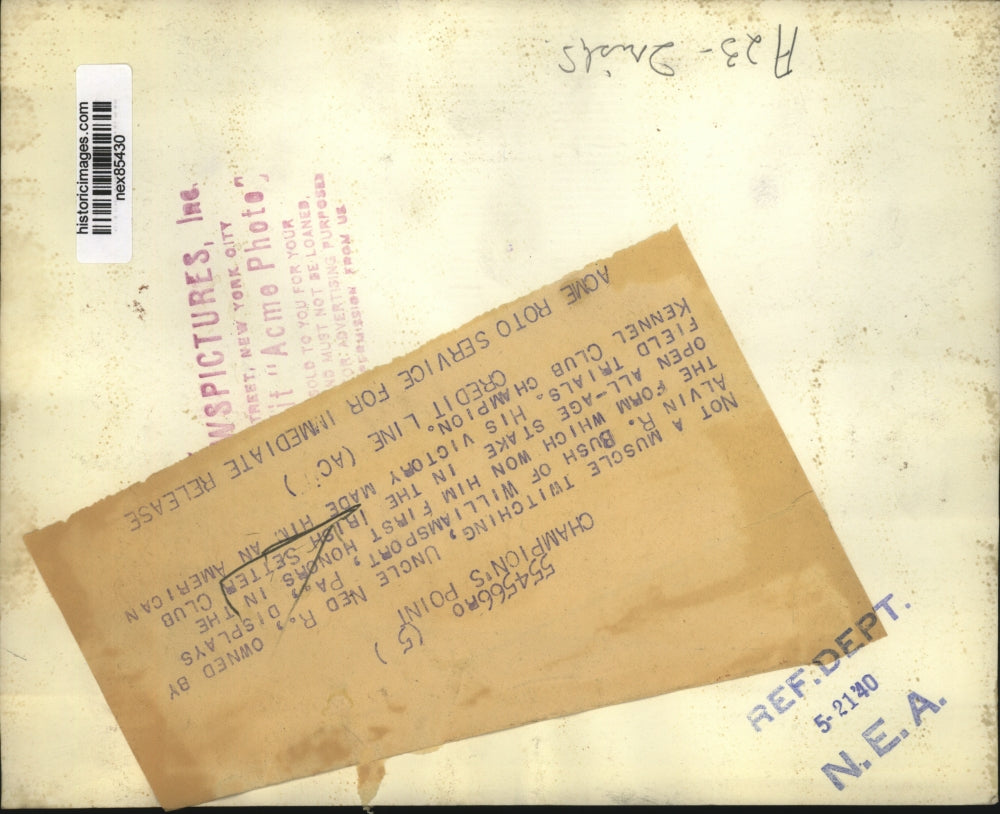 historicimages.com
nex85430
WSPICTURES, Inc.
TREET, NEW YORK CITY
it "Acme Photo"
SOLD TO YOU FOR YOUR
ND MUST NOT BE LOANED,
OR ADVERTISING PURPOSES
PERMISSION FROM US
554566RO (5)
CHAMPION'S POINT
NOT A MUSCLE TWITCHING, UNCLE NED R., OWNED BY
ALVIN R. BUSH OF WILLIAMSPORT, PA., DISPLAYS
THE FORM WHICH WON HIM FIRST HONORS IN THE
OPEN ALL-AGE STAKE IN THE IRISH SETTER CLUB
FIELD TRIALS. HIS VICTORY MADE HIM AN AMERICAN
KENNEL CLUB CHAMPION.
CREDIT LINE (AC )
ACME ROTO SERVICE FOR IMMEDIATE RELEASE
REF. DEPT.
5-21'40
N.E.A.